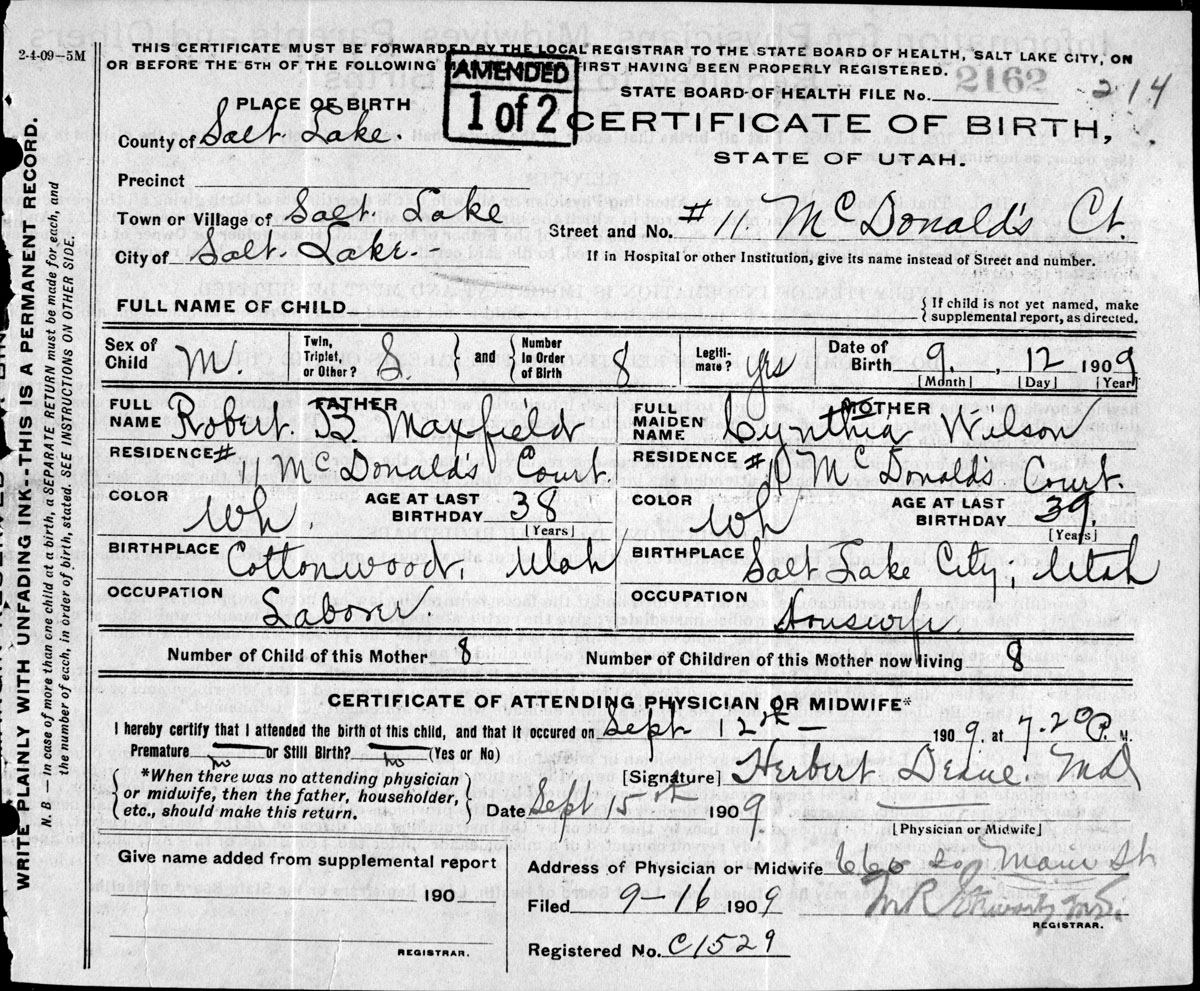 2-4-09—5M
THIS CERTIFICATE MUST BE FORWARDED BY THE LOCAL REGISTRAR TO THE STATE BOARD OF HEALTH, SALT LAKE CITY, ON
OR BEFORE THE 5TH OF THE FOLLOWING FIRST HAVING BEEN PROPERLY REGISTERED.
AMENDED
1 of 2
2162
214
STATE BOARD OF HEALTH FILE No.
PLACE OF BIRTH
CERTIFICATE OF BIRTH,
STATE OF UTAH.
County of Salt Lake
Precinct
Town or Village of Salt Lake
Street and No. # 11 McDonald's Ct
City of Salt Lake
If in Hospital or other Institution, give its name instead of Street and number.
FULL NAME OF CHILD
{If child is not yet named, make
supplemental report, as directed.
Sex of Child M. Twin, Triplet, or Other? S. } and { Number in Order of Birth 8 Legitimate? yes Date of Birth 9, 12 1909
[Month] [Day] [Year]
FATHER
FULL NAME Robert B. Maxfield
MOTHER
FULL MAIDEN NAME Cynthia Wilson
RESIDENCE # 11 McDonald's Court.
RESIDENCE # McDonald's Court.
COLOR Wh. AGE AT LAST BIRTHDAY 38 [Years]
COLOR Wh AGE AT LAST BIRTHDAY 39. [Years]
BIRTHPLACE Cottonwood, Utah
BIRTHPLACE Salt Lake City, Utah
OCCUPATION Laborer.
OCCUPATION Housewife.
Number of Child of this Mother 8 Number of Children of this Mother now living 8
CERTIFICATE OF ATTENDING PHYSICIAN OR MIDWIFE*
I hereby certify that I attended the birth of this child, and that it occured on Sept 12th — 1909, at 7.20 P. M.
Premature no or Still Birth? no (Yes or No)
{ *When there was no attending physician
or midwife, then the father, householder,
etc., should make this return. }
[Signature] Herbert MD
Date Sept 15th 1909
[Physician or Midwife]
Give name added from supplemental report
190
REGISTRAR.
Address of Physician or Midwife 666 So Main St
Filed 9-16 1909
REGISTRAR.
Registered No. C1529
WRITE PLAINLY WITH UNFADING INK--THIS IS A PERMANENT RECORD.
N. B.—In case of more than one child at a birth, a SEPARATE RETURN must be made for each, and
the number of each, in order of birth, stated. SEE INSTRUCTIONS ON OTHER SIDE.